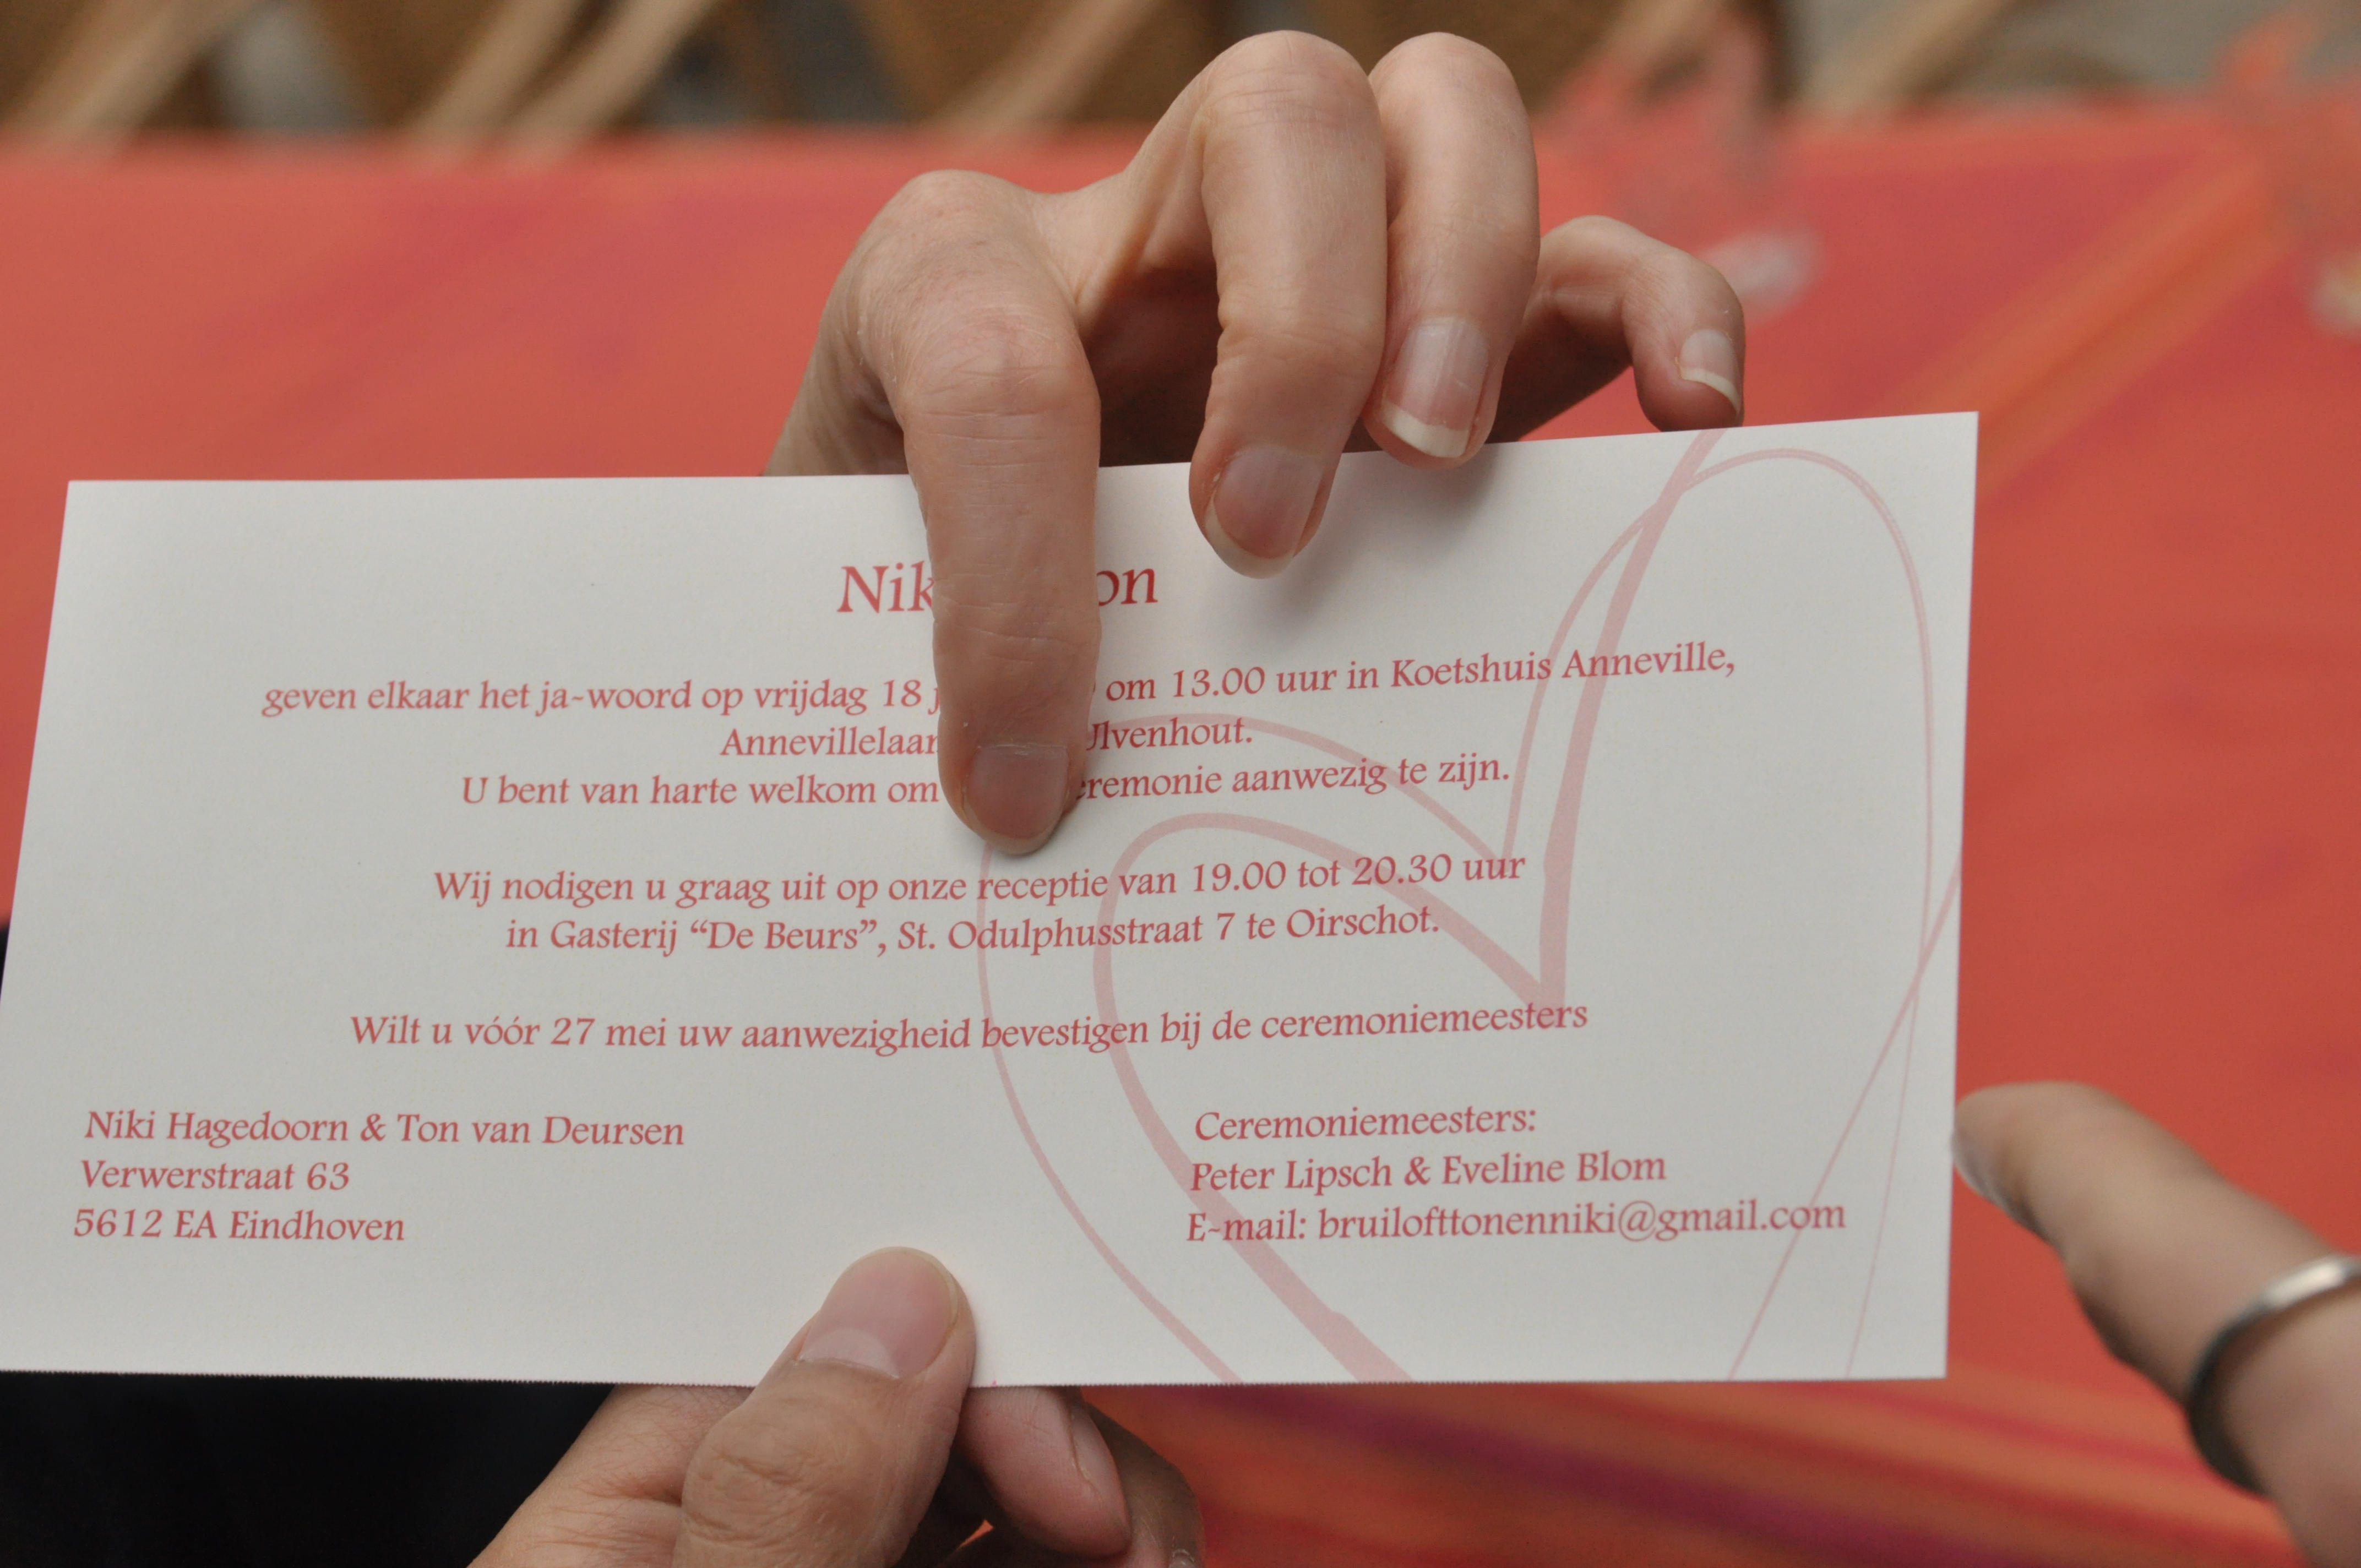 geven elkaar het ja-woord op vrijdag 18 om 13.00 uur in Koetshuis Anneville,
Ulvenhout.
U bent van harte welkom om aanwezig te zijn.
Wij nodigen u graag uit op onze receptie van 19.00 tot 20.30 uur
in Gasterij “De Beurs”, St. Odulphusstraat 7 te Oirschot.
Wilt u vóór 27 mei uw aanwezigheid bevestigen bij de ceremoniemeesters
Niki Hagedoorn & Ton van Deursen
Verwerstraat 63
5612 EA Eindhoven
Ceremoniemeesters:
Peter Lipsch & Eveline Blom
E-mail: bruilofttonenniki@gmail.com